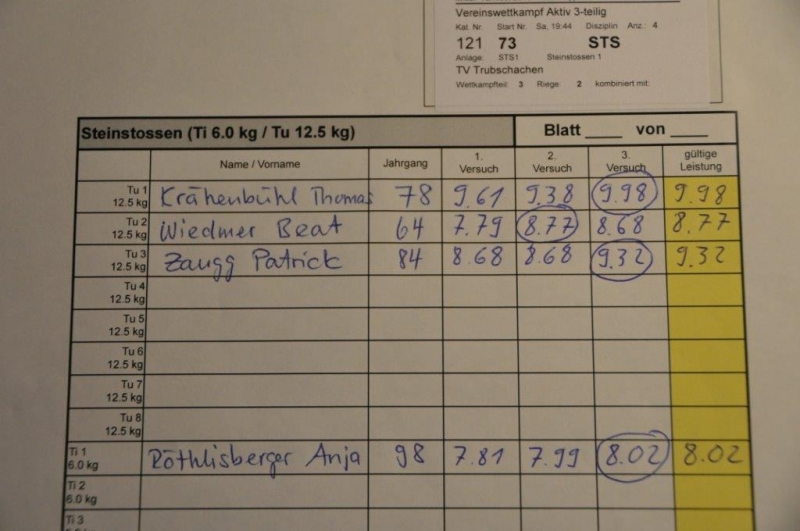 Vereinswettkampf Aktiv 3-teilig
Kat. Nr. Start Nr. Sa, 19:44 Disziplin Anz.: 4
121 73 STS
Anlage: STS1 Steinstossen 1
TV Trubschachen
Wettkampfteil: 3 Riege: 2 kombiniert mit:
Steinstossen (Ti 6.0 kg / Tu 12.5 kg) Blatt ____ von ____
Name / Vorname Jahrgang 1. Versuch 2. Versuch 3. Versuch gültige Leistung
Tu 1 12.5 kg Krähenbühl Thomas 78 9.61 9.38 9.98 9.98
Tu 2 12.5 kg Wiedmer Beat 64 7.79 8.77 8.68 8.77
Tu 3 12.5 kg Zaugg Patrick 84 8.68 8.68 9.32 9.32
Tu 4 12.5 kg
Tu 5 12.5 kg
Tu 6 12.5 kg
Tu 7 12.5 kg
Tu 8 12.5 kg
Ti 1 6.0 kg Röthlisberger Anja 98 7.81 7.99 8.02 8.02
Ti 2 6.0 kg
Ti 3